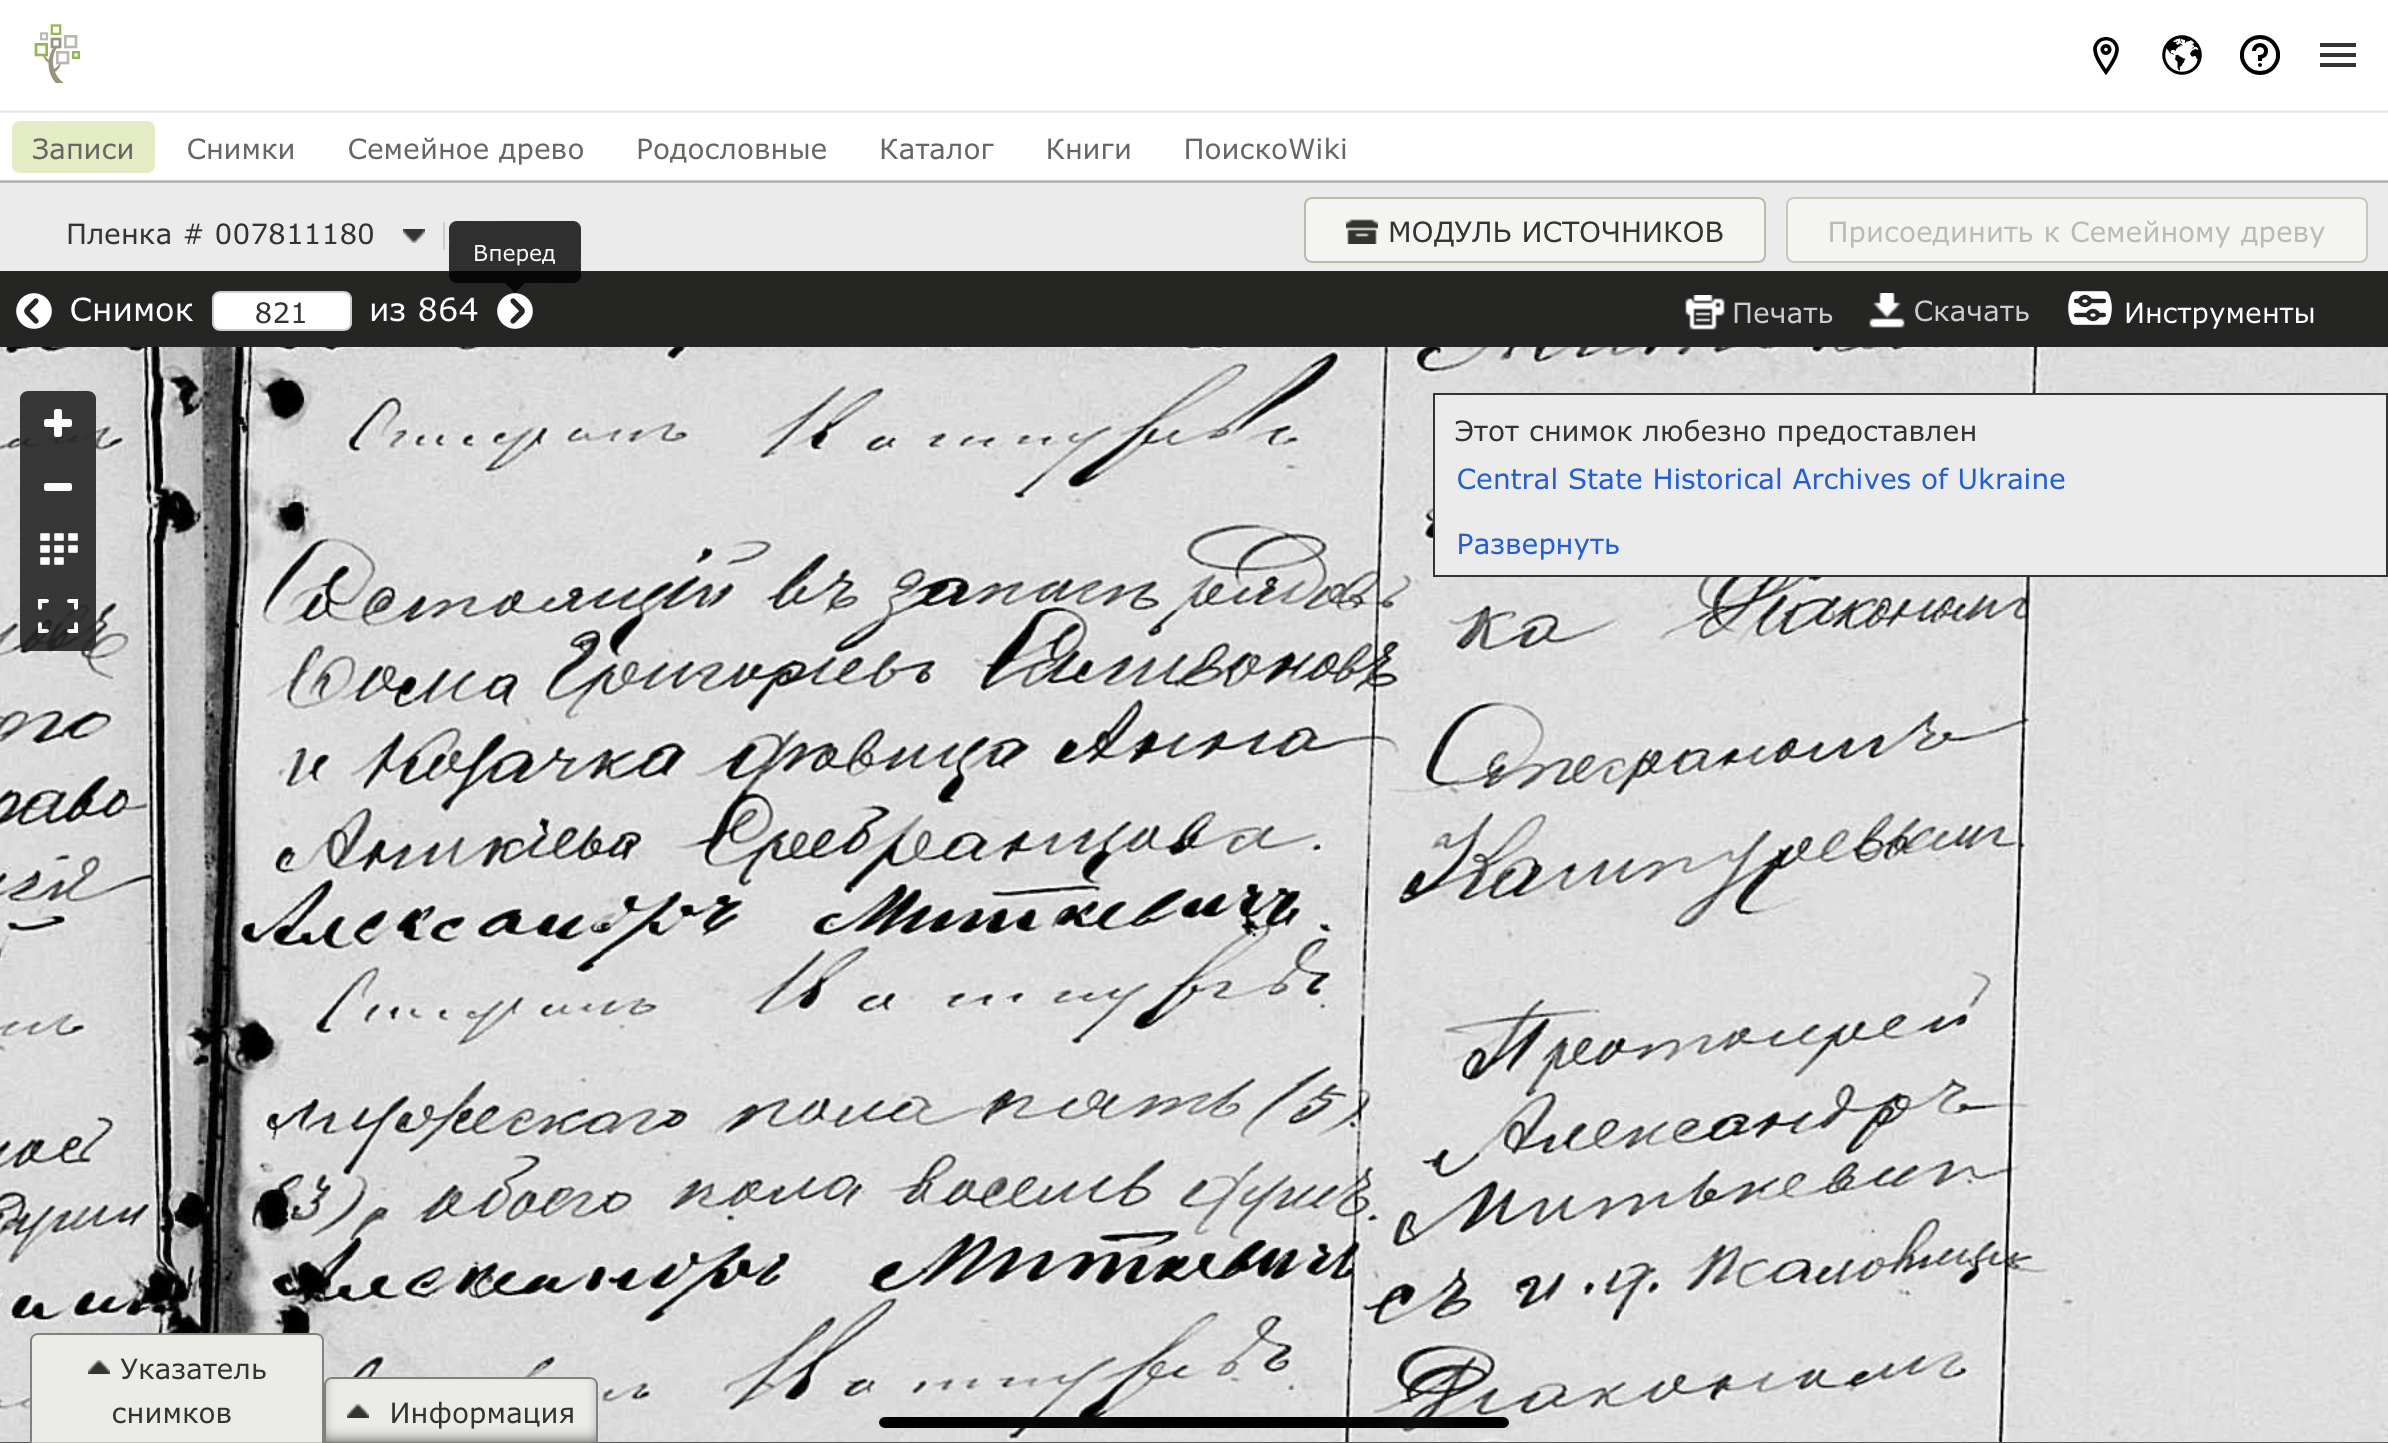 Записи Снимки Семейное древо Родословные Каталог Книги ПоискоWiki
Пленка # 007811180
Вперед
МОДУЛЬ ИСТОЧНИКОВ
Присоединить к Семейному древу
Снимок 821 из 864
Печать Скачать Инструменты
Этот снимок любезно предоставлен
Central State Historical Archives of Ukraine
Развернуть
Стефанъ Кашпуревъ
Состоящій въ запасѣ рядовъ
Ѳома Григорьевъ Саливоновъ
и Козачка дѣвица Анна
Аникіева Сребранцова.
Александръ Миткевичъ.
Стефанъ Кашпуревъ.
мужескаго пола пять (5).
(3), обоего пола восемь душъ.
Александръ Миткевичъ
Кашпуревъ.
ка Діакономъ
Стефаномъ
Кашпуревымъ.
Протоиерей
Александръ
Митькевич
съ и.д. Псаломщик
Діакономъ
ого
раво
ной
души
Указатель
снимков
Информация